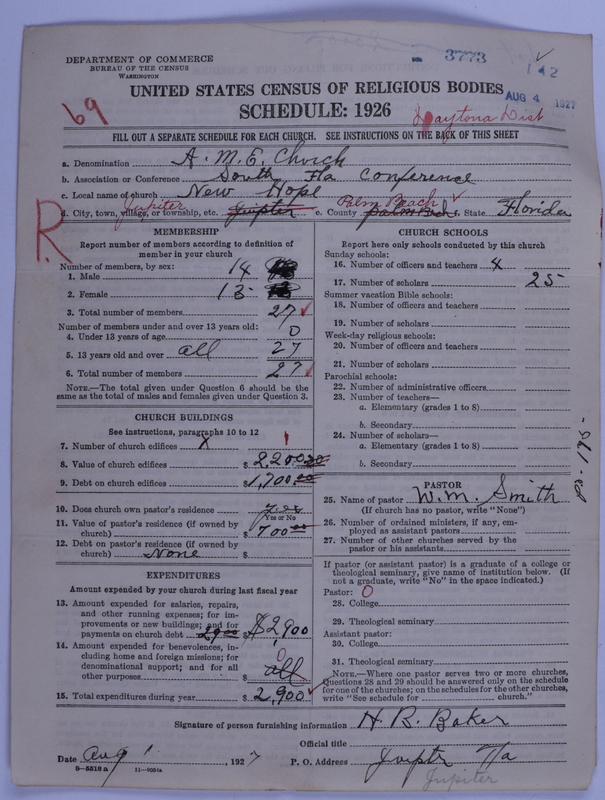 3773
142
DEPARTMENT OF COMMERCE
BUREAU OF THE CENSUS
WASHINGTON
UNITED STATES CENSUS OF RELIGIOUS BODIES
AUG 4 1927
69
SCHEDULE: 1926
Daytona Dist
FILL OUT A SEPARATE SCHEDULE FOR EACH CHURCH. SEE INSTRUCTIONS ON THE BACK OF THIS SHEET
a. Denomination A. M. E. Church
b. Association or Conference South Fla Conference
c. Local name of church New Hope
Jupiter Palm Beach
d. City, town, village, or township, etc. Juipter e. County Palm Bach f. State Florida
R.
MEMBERSHIP
Report number of members according to definition of
member in your church
Number of members, by sex:
1. Male 14
2. Female 13
3. Total number of members 27
Number of members under and over 13 years old:
4. Under 13 years of age 0
5. 13 years old and over all 27
6. Total number of members 27
NOTE.—The total given under Question 6 should be
the same as the total of males and females given under Question 3.
CHURCH BUILDINGS
See instructions, paragraphs 10 to 12
7. Number of church edifices X 1
8. Value of church edifices $ 2,200.00
9. Debt on church edifices $ 1,700.00
10. Does church own pastor's residence
Yes or No
11. Value of pastor's residence (if owned by
church) $ 700.00
12. Debt on pastor's residence (if owned by
church) None $
EXPENDITURES
Amount expended by your church during last fiscal year
13. Amount expended for salaries, repairs,
and other running expenses; for im-
provements or new buildings; and for
payments on church debt 2900 $ $2,900
14. Amount expended for benevolences, in-
cluding home and foreign missions; for
denominational support; and for all
other purposes $ all 0
15. Total expenditures during year $ 2,900
CHURCH SCHOOLS
Report here only schools conducted by this church
Sunday schools:
16. Number of officers and teachers 4
17. Number of scholars 25
Summer vacation Bible schools:
18. Number of officers and teachers
19. Number of scholars
Week-day religious schools:
20. Number of officers and teachers
21. Number of scholars
Parochial schools:
22. Number of administrative officers
23. Number of teachers—
a. Elementary (grades 1 to 8)
b. Secondary
24. Number of scholars—
a. Elementary (grades 1 to 8)
b. Secondary
PASTOR
25. Name of pastor W. M. Smith
(If church has no pastor, write "None")
26. Number of ordained ministers, if any, em-
ployed as assistant pastors
27. Number of other churches served by the
pastor or his assistants
If pastor (or assistant pastor) is a graduate of a college or
theological seminary, give name of institution below. (If
not a graduate, write "No" in the space indicated.)
Pastor: O
28. College
29. Theological seminary
Assistant pastor:
30. College
31. Theological seminary
NOTE.—Where one pastor serves two or more churches,
Questions 28 and 29 should be answered only on the schedule
for one of the churches; on the schedules for the other churches,
write "See schedule for church."
Signature of person furnishing information H. B. Baker
Official title
Date Aug 1 1927 P. O. Address Juiptr Fla
8-5518a 11-9054a Jupiter